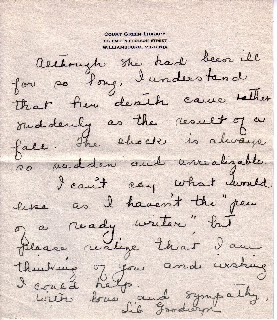 COURT GREEN LIBRARY
WILLIAMSBURG, VIRGINIA
Although she had been ill
for so long, I understand
that her death came rather
suddenly as the result of a
fall. The shock is always
so sudden and unrealizable.
I can't say what I would
like as I haven't the "pen
of a ready writer", but
please realize that I am
thinking of you and wishing
I could help.
With love and sympathy,
Lib Goodwyn